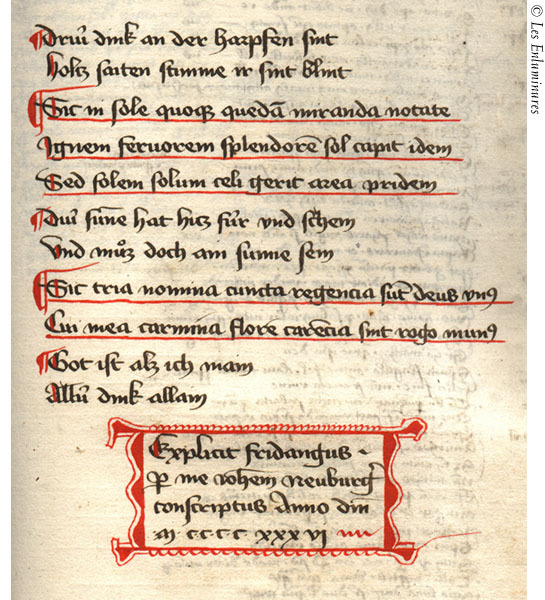 Driu dink an der harpfen sint
holtz saiten stimme ir sint blint
Sic in sole quoque quedā miranda notate
Ignem feruorem splendorē sol capit idem
Sed solem solum celi gerit area pridem
Diu sūne hat hitz für vnd schein
Vnd muͦz doch ain sunne sein
Sic tria nomina cuncta regencia sūt deus vnꝰ
Cui mea carmina flore carēcia sint rogo munꝰ
Got ist alz ich main
Alliu dink allain
Explicit fridangus
ꝑ me Neuburg
conscriptus Anno dn̄i
M cccc xxxvi
© Les Enluminures